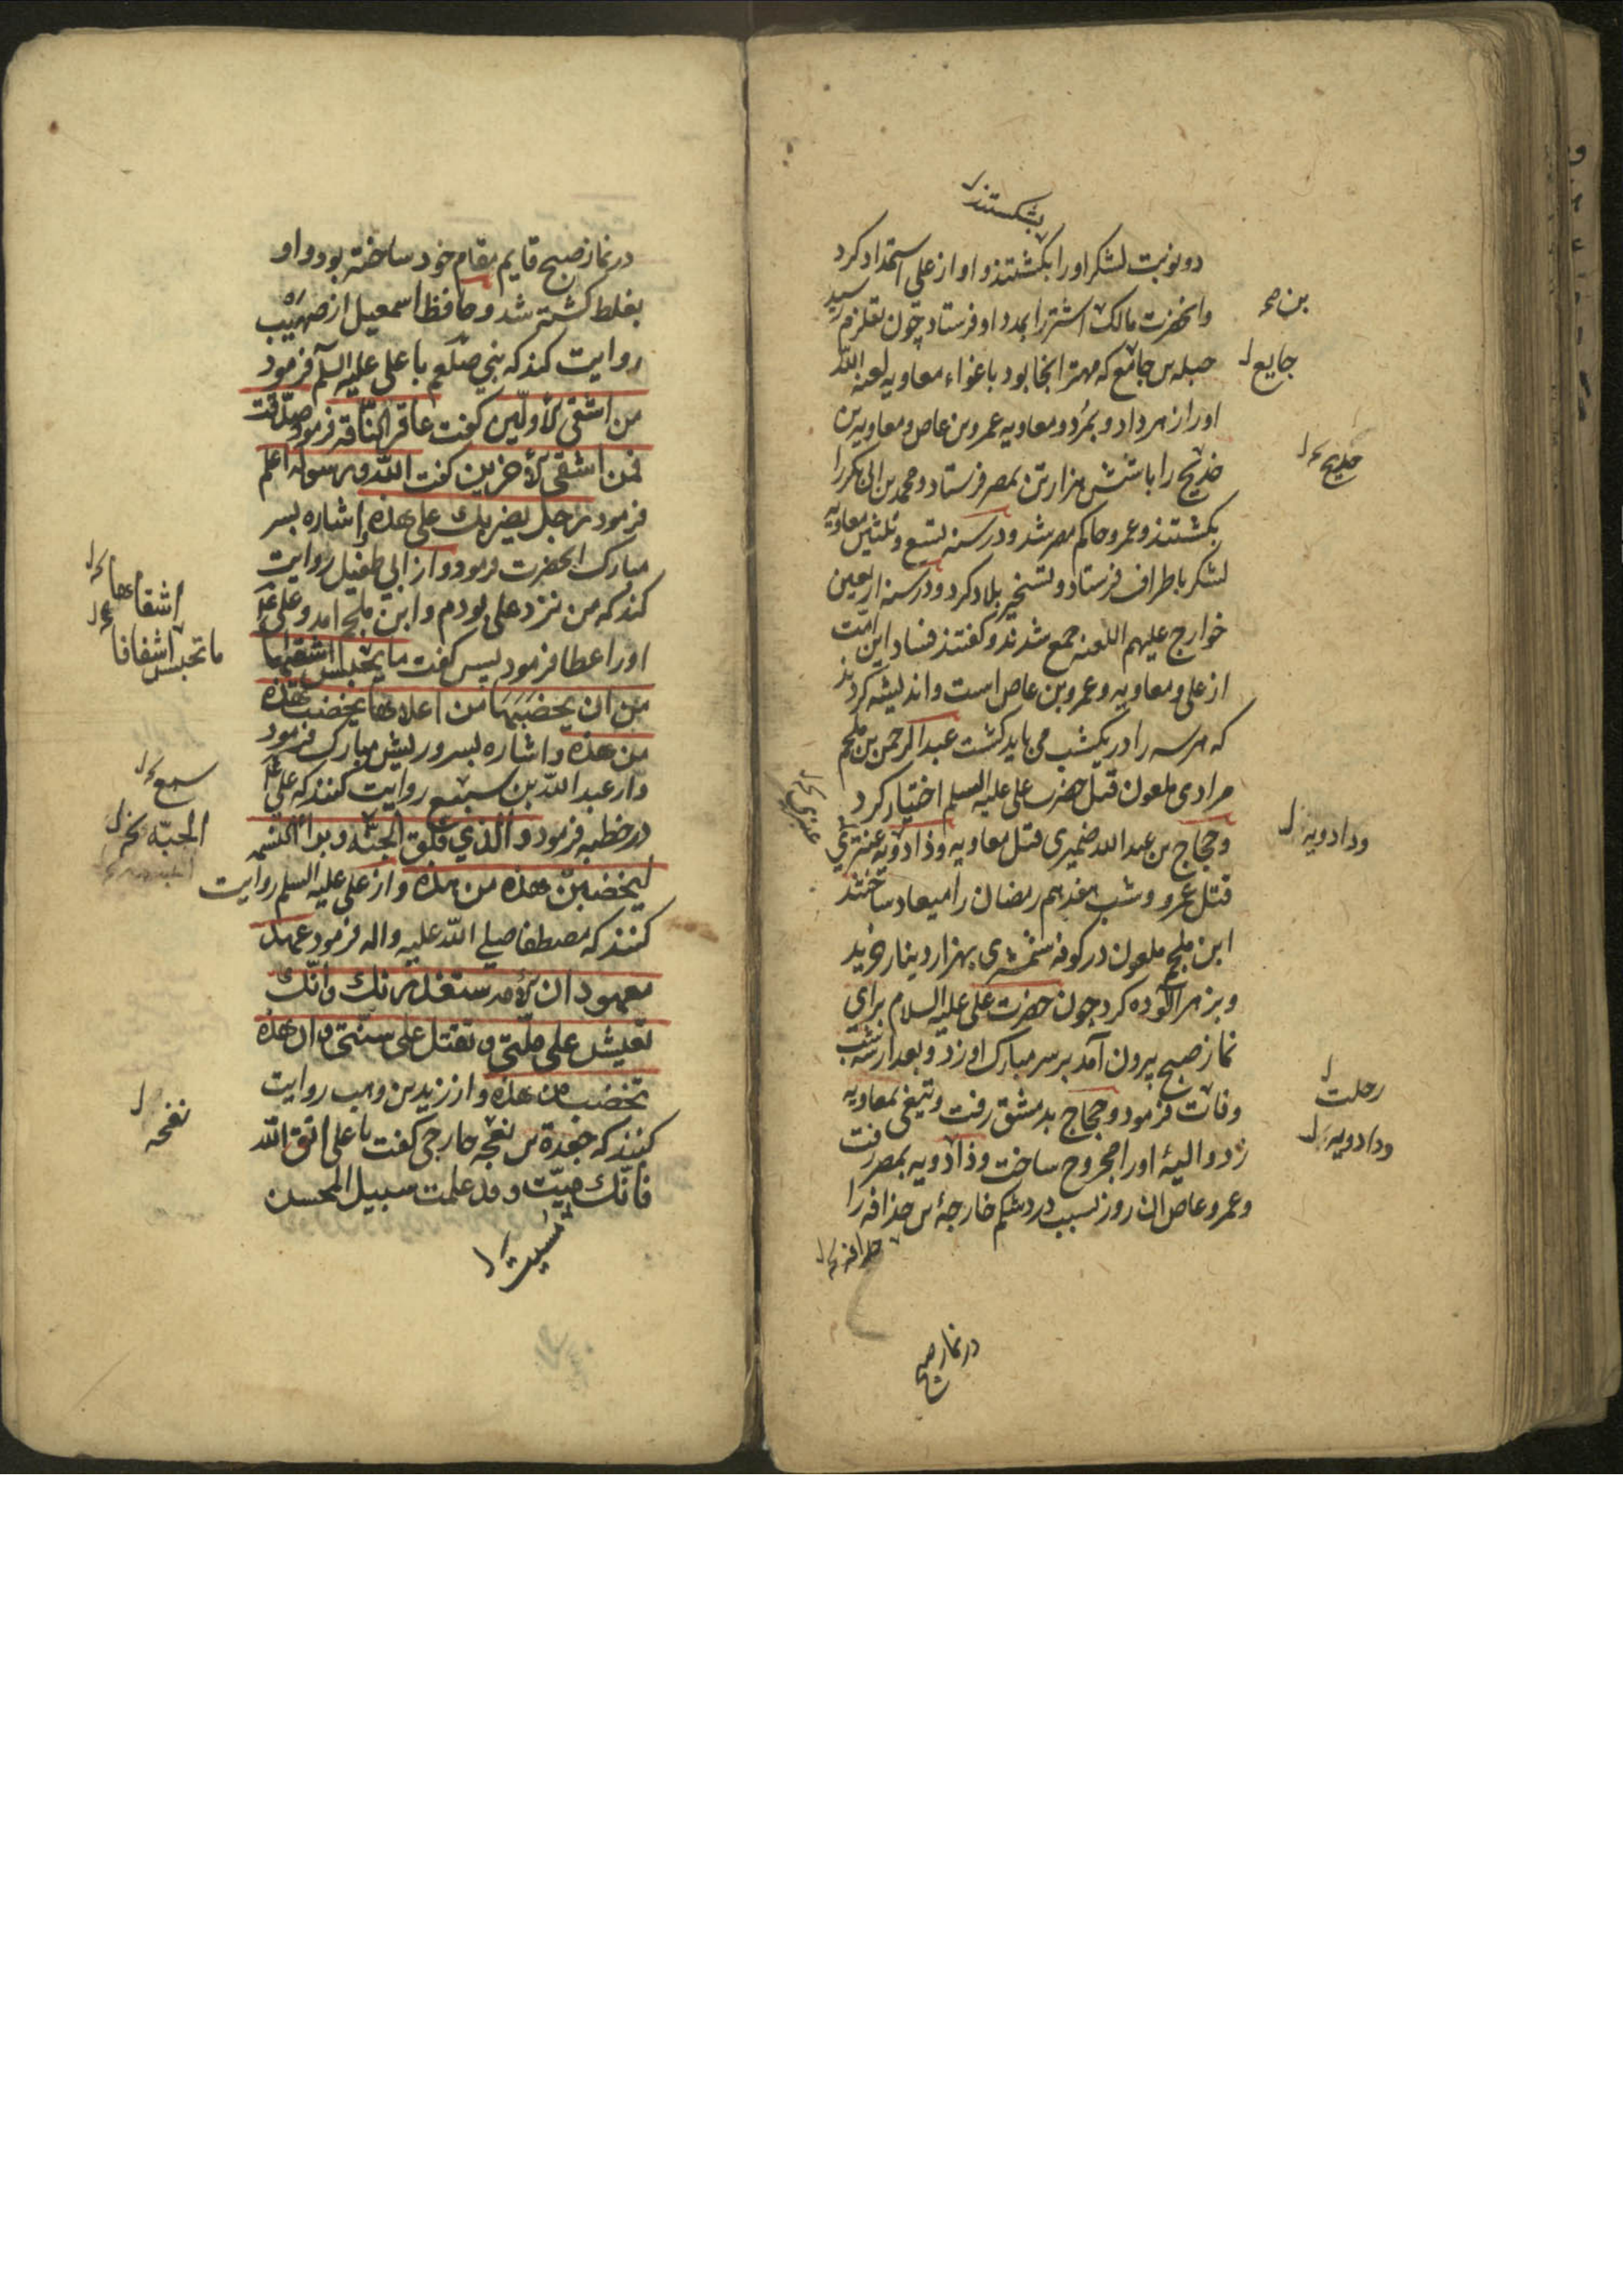 بشکستند
دو نوبت لشکر او را بکشتند و او از علی استمداد کرد
و انحضرت مالک اشتر را بمدد او فرستاد چون بقلزم رسید
بن
حبله بن جامع که مهتر انجا بود باغواء معاویه لعنه الله
جایع
او را زهر داد و بمُرد و معاویه عمرو بن عاص و معاویة بن
خدیج را با شش هزار تن بمصر فرستاد و محمد بن ابی بکر را
بکشتند و عمرو حاکم مصر شد و در سنه تسع و ثلثین معاویه
لشکر باطراف فرستاد و تسخیر بلاد کرد و در سنه اربعین
خوارج علیهم اللعنه جمع شدند و گفتند فساد این امّت
از علی و معاویه و عمرو بن عاص است و اندیشه کردند
که هر سه را در یکشب می باید کشت عبد الرحمن بن ملجم
مرادی ملعون قتل حضرت علی علیه السلم اختیار کرد
و حجاج بن عبد الله ضمیری قتل معاویه و ذادویه عنبری
ودادویه
قتل عمرو و شب هفدهم رمضان را میعاد ساختند
ابن ملجم ملعون در کوفه شمشیری بهزار دینار خرید
و بزهر آلوده کرد چون حضرت علی علیه السلام برای
نماز صبح بیرون آمد بر سر مبارک او زد و بعد از سه شب
وفات فرمود و حجاج بدمشق رفت و تیغی بمعاویه
رحلت
زد و الیۀ او را مجروح ساخت و ذادویه بمصر رفت
ودادویه
و عمرو عاص ان روز بسبب درد شکم خارجة بن حذافه را
حذافه
در نماز صبح
در نماز صبح قایم مقام خود ساخته بود و او
بغلط کشته شد و حافظ اسمعیل از صهیب
روایت کند که نبی صلعم با علی علیه السلم فرمود
من اشقی الأولین گفت عاقر الناقة فرمود صدّقت
فمن اشقی الأخرین گفت الله و رسوله اعلم
فرمود رجل یضربك علی هذه و اشاره بسر
مبارک انحضرت فرمود و از ابی طفیل روایت
کند که من نزد علی بودم و ابن ملجم امد و علی
اشقاها
او را عطا فرمود پس گفت ما یحبس اشقیها
ما تحبس اشقاها
من ان یخضبها من اعلاها یخضب هذه
من هذه و اشاره بسر و ریش مبارک فرمود
و از عبد الله بن سبیع روایت کنند که علی
سبع
در خطبه فرمود و الذی فلق الحبّه و برأ النسمه
الحبّه
لیخضبنّ هذه من هذه و از علی علیه السلم روایت
کنند که مصطفا صلی الله علیه واله فرمود عهد
معهود ان الأمه ستغدر بك و انّك
تعیش علی ملّتی و تقتل علی سنّتی و ان هذه
تخضب من هذه و از زید بن وهب روایت
کنند که جعدة بن نعجه خارجی گفت یا علی اتق الله
نعجه
فانّك میّت و قد علمت سبیل المحسن